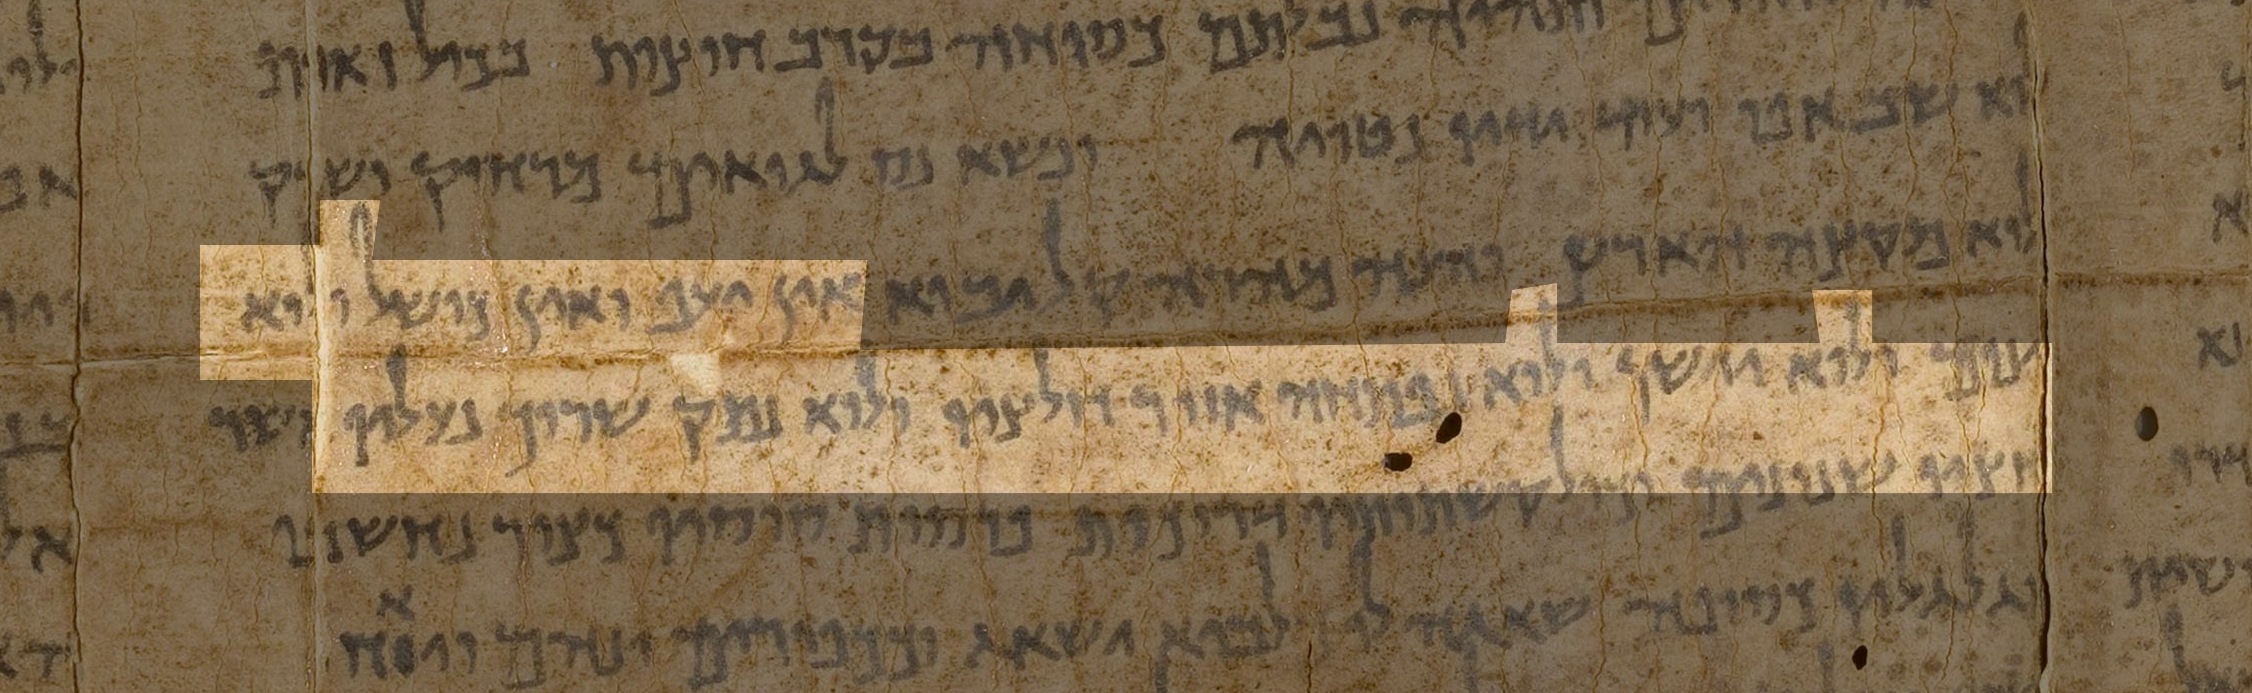 ההרים ותהיה נבלתם כסוחה בקרב חוצות בכול זואת
לוא שב אפו ועוד ידיו נטויה ונשא נס לגואים מרחוק ושרק
לוא מקצה הארץ והנה מהרה קל יבוא אין יעף ואין כושל ולוא
ינום ולוא יישן ולוא נפתח אזור חלציו ולוא נתק שרוך נעליו אשר
חציו שנונים וכול קשתותיו דרוכות פרסות סוסיו כצור נחשבו
וגלגליו כסופה שאגה לו כלביא ישאג וככפירים ינהם ויאחז